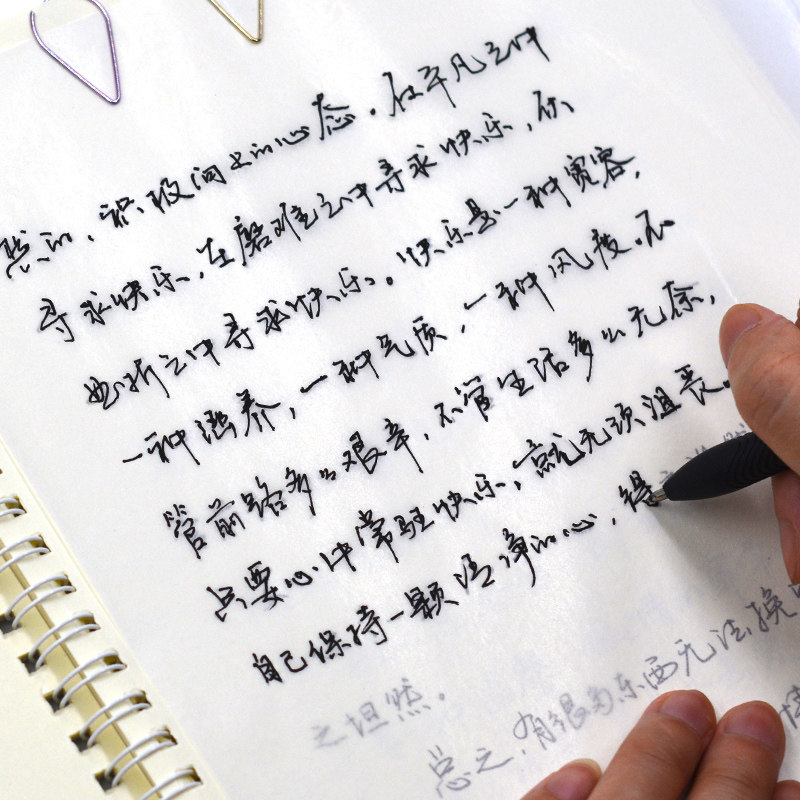 然的、积极向上的心态。在平凡之中
寻求快乐,在磨难之中寻求快乐,在
曲折之中寻求快乐。快乐是一种宽容,
一种涵养,一种气质,一种风度。不
管前路多么艰辛,不管生活多么无奈,
只要心中常驻快乐,就无须沮丧。
自己保持一颗洁净的心,得
之坦然。
总之,有很多东西无法换